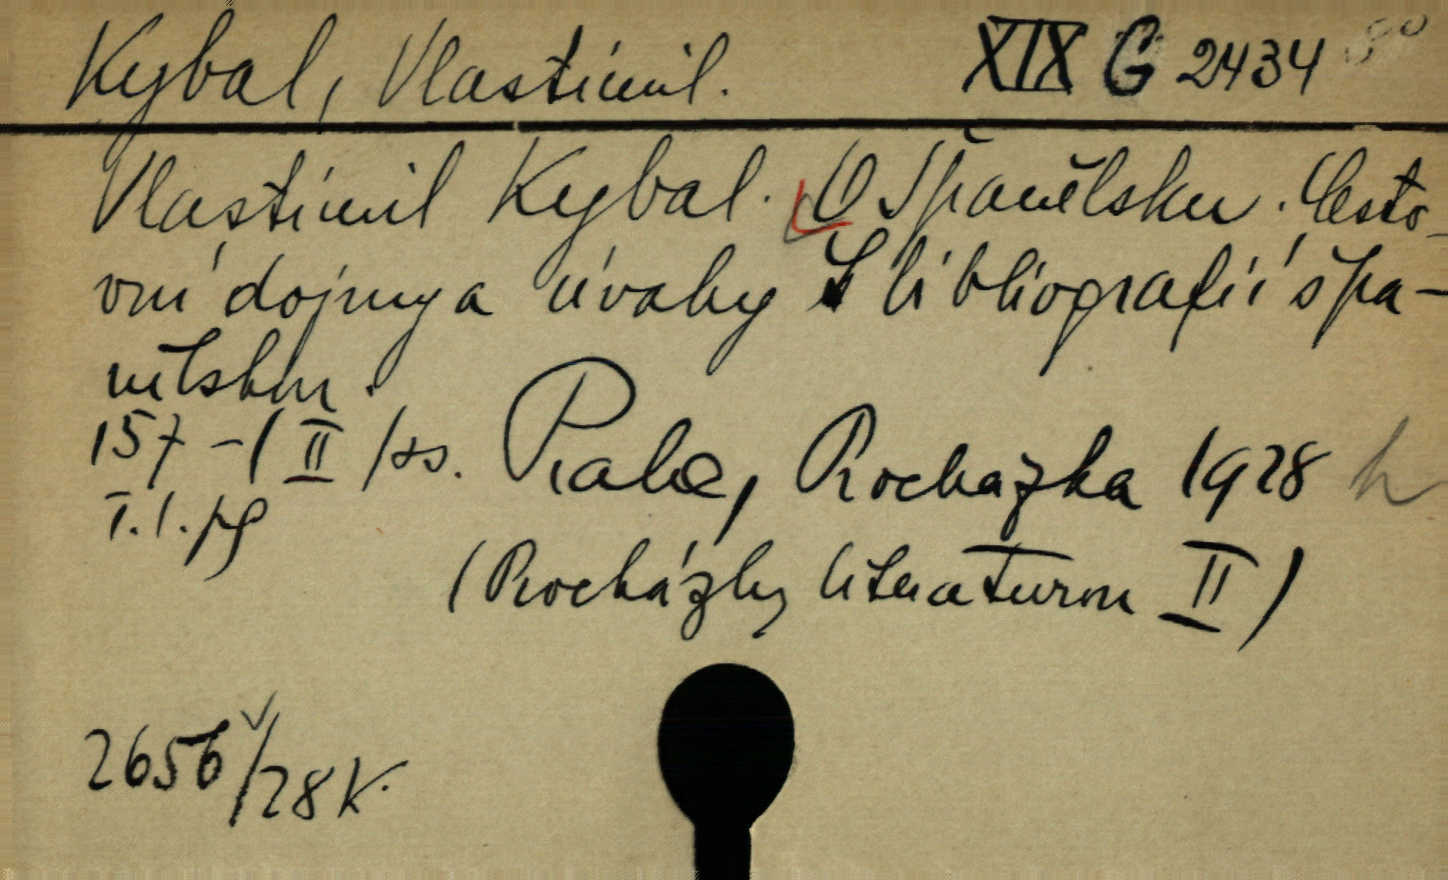 Kybal, Vlastimil. XIX G 2434 8°
Vlastimil Kybal. O Španělsku. Cesto-
vní dojmy a úvahy S bibliografií špa-
nělskou.
157 - (II) ss. Praha, Procházka 1928
T. l. pg
(Procházky literaturou II)
2656/28 K.